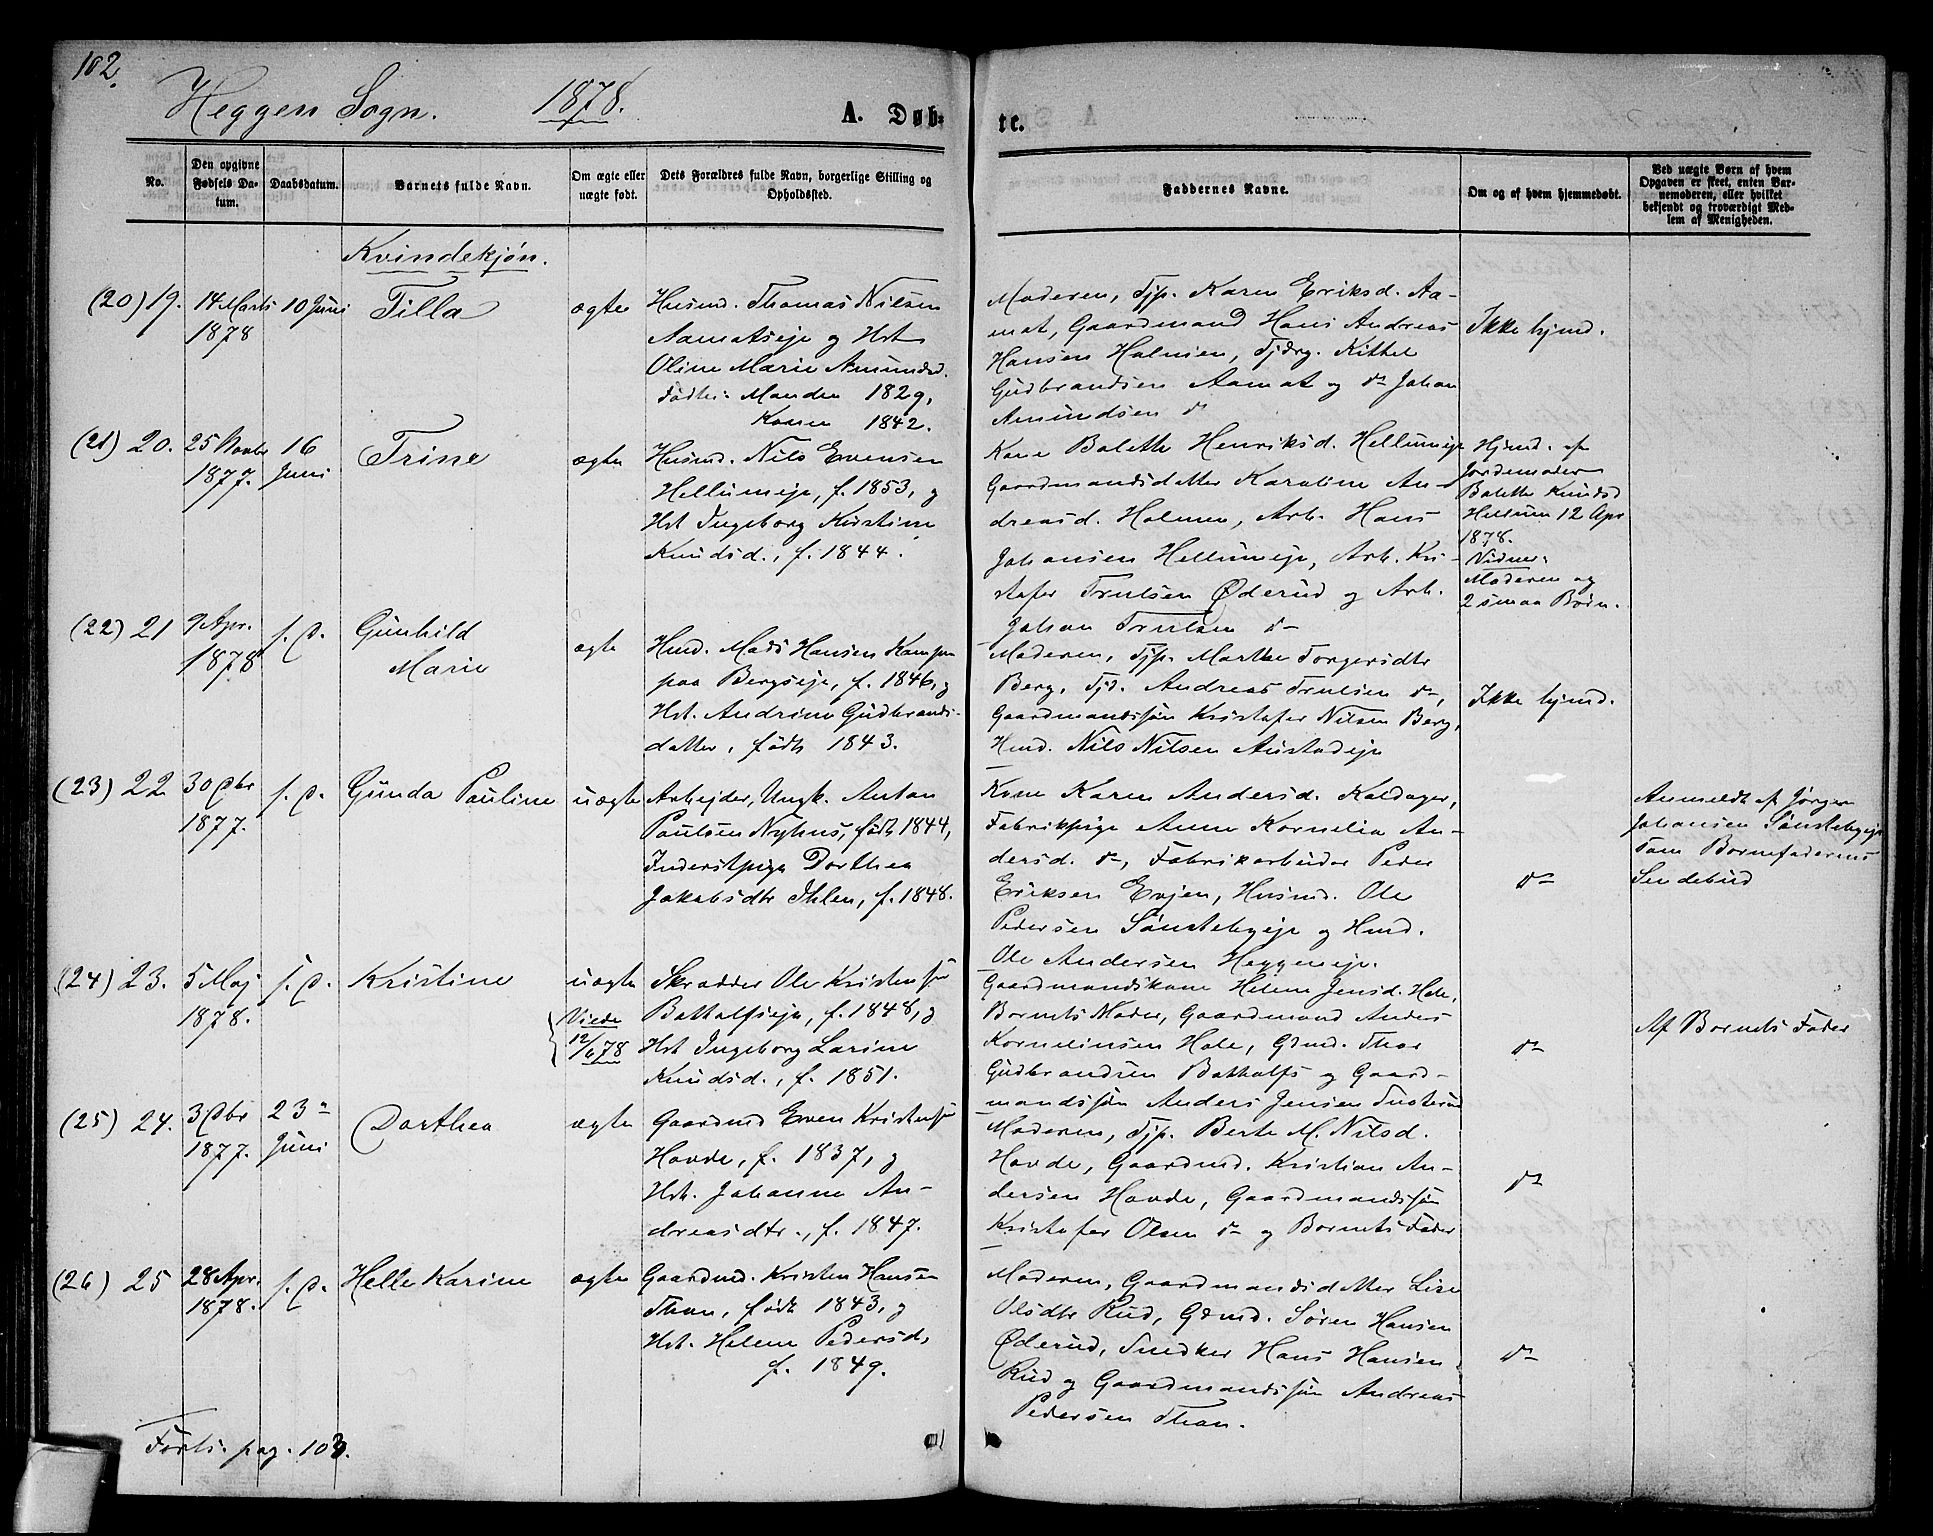 102.
Heggen Sogn. 1878.
A. Døb-
te.
No.
Den opgivne Fødsels Da-
tum.
Daabsdatum.
Barnets fulde Navn.
Om ægte eller
uægte født.
Dets Forældres fulde Navn, borgerlige Stilling og
Opholdssted.
Faddernes Navne.
Om og af hvem hjemmedøbt.
Ved uægte Børn af hvem
Opgaven er skeet, enten Bar-
nemoderen, eller hvilket
bekjendt og troværdigt Med-
lem af Menigheden.
Kvindekjøn.
(20) 19.
14 Marts
1878
10 Juni
Tilla
ægte
Husmd. Thomas Nilsen
Aamotseje og Hst
Oline Marie Amundsd.
Født: Manden 1829,
Konen 1842.
Moderen, Tjp. Karen Eriksd. Aa-
mot, Gaardmand Hans Andreas
Hansen Holmen, Tjdrg. Kittel
Gudbrandsen Aamot og do Johan
Amundsen do
Ikke hjmd.
(21) 20.
25 Novbr
1877.
16
Juni
Trine
ægte
Husmd. Nils Evensen
Hellumeje, f. 1853, og
Hst Ingeborg Kristine
Knudsd., f. 1844.
Kone Bolette Henriksd. Hellumeje
Gaardmandsdatter Karoline An-
dreasd. Holmen, Arb. Hans
Johansen Hellumeje, Arb. Kri-
stofer Trulsen Øderud og Arb.
Johan Trulsen do
Hjmd. af
Jordemoder
Bolette Knudsd
Hellum 12 Apr
1878.
Vidner:
Moderen og
2 smaa Børn.
(22) 21
9 Apr.
1878
s. D.
Gunhild
Marie
ægte
Hmd. Mads Hansen Kampen
paa Bergseje, f. 1846, og
Hst. Andrine Gudbrands-
datter, født 1843.
Moderen, Tjp. Marthe Torgersdtr
Berg, Tjd. Andreas Trulsen do,
Gaardmandssøn Kristofer Nilsen Berg,
Hmd. Nils Nilsen Austadeje
Ikke hjmd.
(23) 22
30 Dbr
1877.
s. D.
Gunda Pauline
uægte
Arbejder, Ungk. Anton
Paulsen Nyhus, født 1844,
Inderstpige Dorthea
Jakobsdtr Ihlen, f. 1848.
Kone Karen Andersd. Koldager,
Fabrikpige Anne Kornelia An-
dersd. do, Fabrikarbeider Peder
Eriksen Evjen, Husmd. Ole
Pedersen Sønstebyeje og Hmd.
Ole Andersen Heggeneje.
do
Anmeldt af Jørgen
Johansen Sønstebyeje
som Barnefaderens
Sendebud
(24) 23.
5 Maj
1878.
s. D.
Kristine
uægte
Viede
12/6 78
Skrædder Ole Kristensen
Bottolfseje, f. 1848, og
Hst Ingeborg Larine
Knudsd., f. 1851.
Gaardmandskone Helene Jensd. Hole,
Barnets Moder, Gaardmand Anders
Korneliusen Hole, Gdmd. Thor
Gudbrandsen Bottolfs og Gaard-
mandssøn Anders Jensen Tusterud
do
Af Barnets Fader
(25) 24.
3 Dbr
1877.
23de
Juni
Dorthea
ægte
Gaardmd Even Kristensen
Hovde, f. 1837, og
Hst. Johanne An-
dreasdtr., f. 1847.
Moderen, Tjp. Berte M. Nilsd.
Hovde, Gaardmd. Kristian An-
dersen Hovde, Gaardmandssøn
Kristofer Olsen do og Barnets Fader
do
(26) 25
28 Apr.
1878.
s. D.
Helle Karine
ægte
Gaardmd. Kristen Hansen
Thon, født 1843, og
Hst. Helene Pedersd,
f. 1849.
Moderen, Gaardmandsdatter Lise
Olsdtr Rud, Gdmd. Søren Hansen
Øderud, Snedker Hans Hansen
Rud og Gaardmandssøn Andreas
Pedersen Thon.
do
Forts. pag. 103.